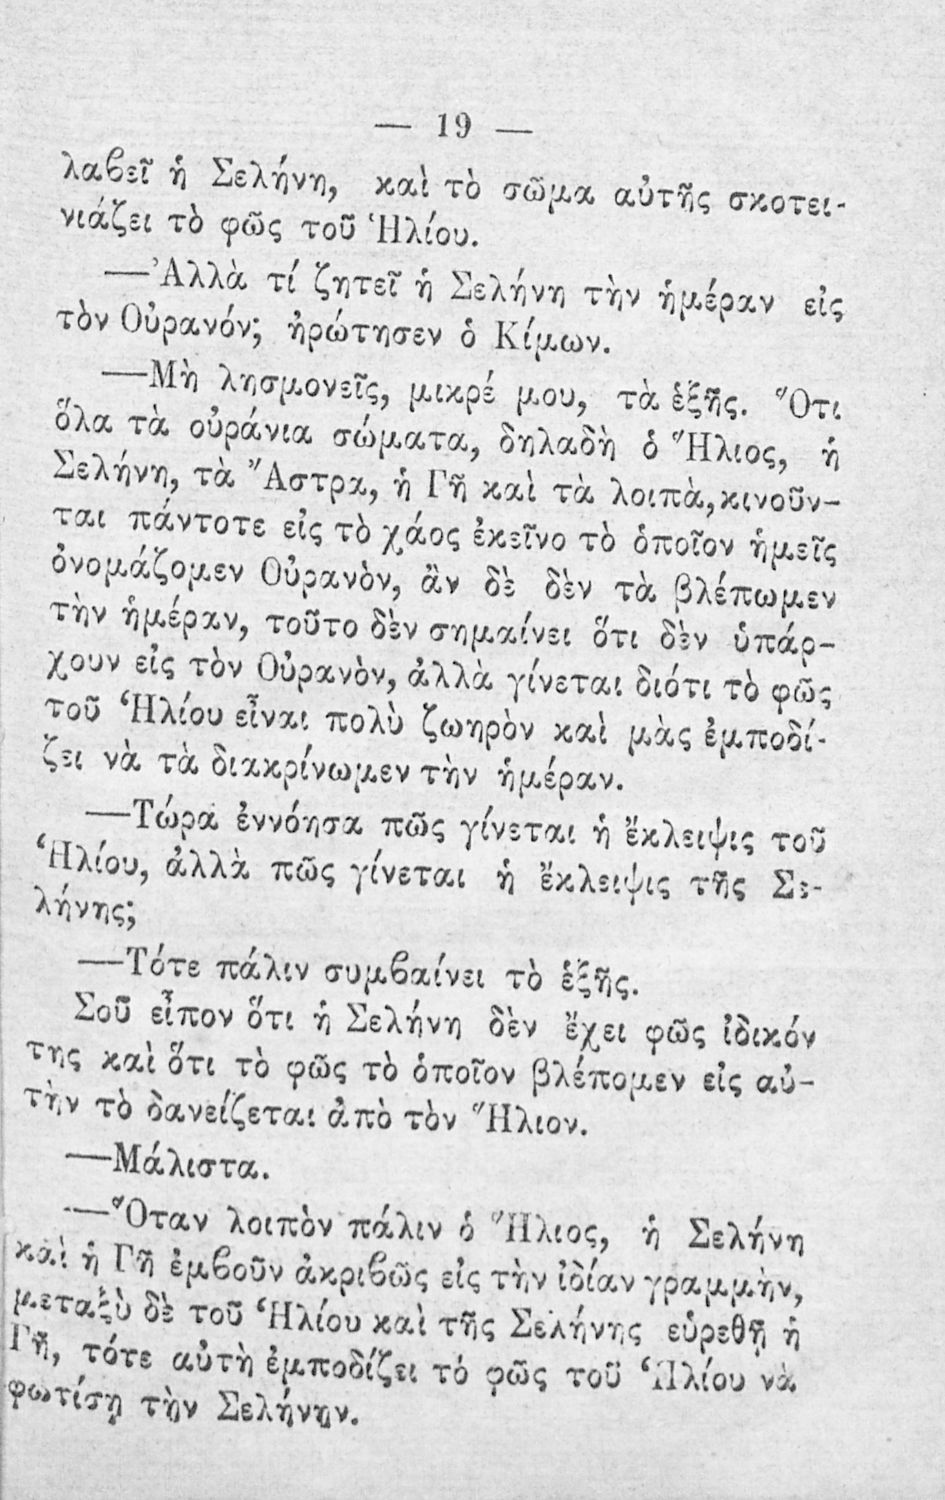 — 19 —
λαβεῖ ἡ Σελήνη, καὶ τὸ σῶμα αὐτῆς σκοτει-
νιάζει τὸ φῶς τοῦ Ἡλίου.
—Ἀλλὰ τί ζητεῖ ἡ Σελήνη τὴν ἡμέραν εἰς
τὸν Οὐρανόν; ἠρώτησεν ὁ Κίμων.
—Μὴ λησμονεῖς, μικρέ μου, τὰ ἑξῆς. Ὅτι
ὅλα τὰ οὐράνια σώματα, δηλαδὴ ὁ Ἥλιος, ἡ
Σελήνη, τὰ Ἄστρα, ἡ Γῆ καὶ τὰ λοιπὰ, κινοῦν-
ται πάντοτε εἰς τὸ χάος ἐκεῖνο τὸ ὁποῖον ἡμεῖς
ὀνομάζομεν Οὐρανὸν, ἂν δὲ δὲν τὰ βλέπωμεν
τὴν ἡμέραν, τοῦτο δὲν σημαίνει ὅτι δὲν ὑπάρ-
χουν εἰς τὸν Οὐρανὸν, ἀλλὰ γίνεται διότι τὸ φῶς
τοῦ Ἡλίου εἶναι πολὺ ζωηρὸν καὶ μὰς ἐμποδί-
ζει νὰ τὰ διακρίνωμεν τὴν ἡμέραν.
—Τώρα ἐννόησα πῶς γίνεται ἡ ἔκλειψις τοῦ
Ἡλίου, ἀλλὰ πῶς γίνεται ἡ ἔκλειψις τῆς Σε-
λήνης;
—Τότε πάλιν συμβαίνει τὸ ἑξῆς.
Σοῦ εἶπον ὅτι ἡ Σελήνη δὲν ἔχει φῶς ἰδικόν
της καὶ ὅτι τὸ φῶς τὸ ὁποῖον βλέπομεν εἰς αὐ-
τὴν τὸ δανείζεται ἀπὸ τὸν Ἥλιον.
—Μάλιστα.
—Ὅταν λοιπὸν πάλιν ὁ Ἥλιος, ἡ Σελήνη
καὶ ἡ Γῆ ἐμβοῦν ἀκριβῶς εἰς τὴν ἰδίαν γραμμὴν,
μεταξὺ δὲ τοῦ Ἡλίου καὶ τῆς Σελήνης εὑρεθῇ ἡ
Γῆ, τότε αὐτὴ ἐμποδίζει τό φῶς τοῦ Ἡλίου νὰ
φωτίσῃ τὴν Σελήνην.